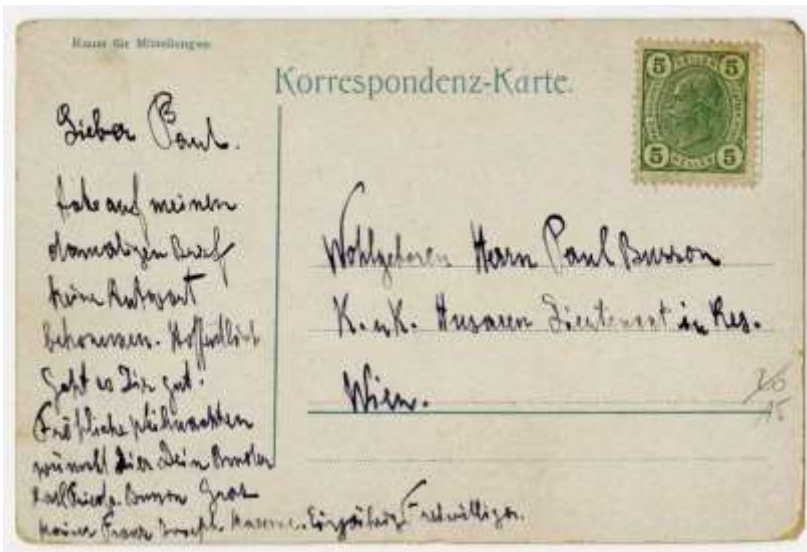 Raum für Mitteilungen
Korrespondenz-Karte.
5 HELLER 5
5 HELLER 5
Lieber Paul.
habe auf meinen
damaligen Brief
keine Antwort
bekommen. Hoffentlich
geht es Dir gut.
Fröhliche Weihnachten
wünscht Dir Dein Bruder
Busson Graz
Kaiser Franz Joseph-Kaserne. Einjährig-Freiwilliger.
Wohlgeboren Herrn Paul Busson
K. u. K. Husaren Lieutenant in Res.
Wien.
15